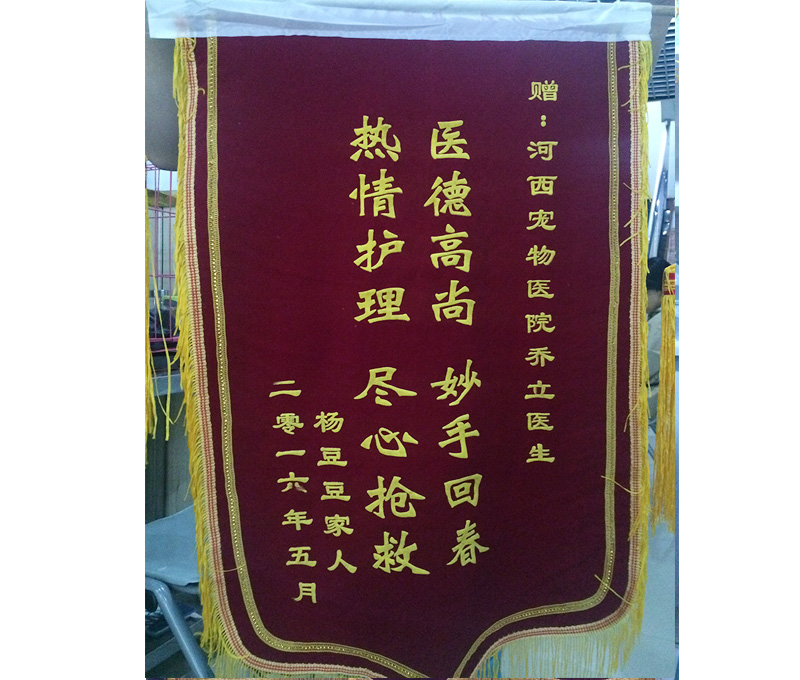 赠：河西宠物医院乔立医生
医德高尚 妙手回春
热情护理 尽心抢救
杨豆豆家人
二零一六年五月